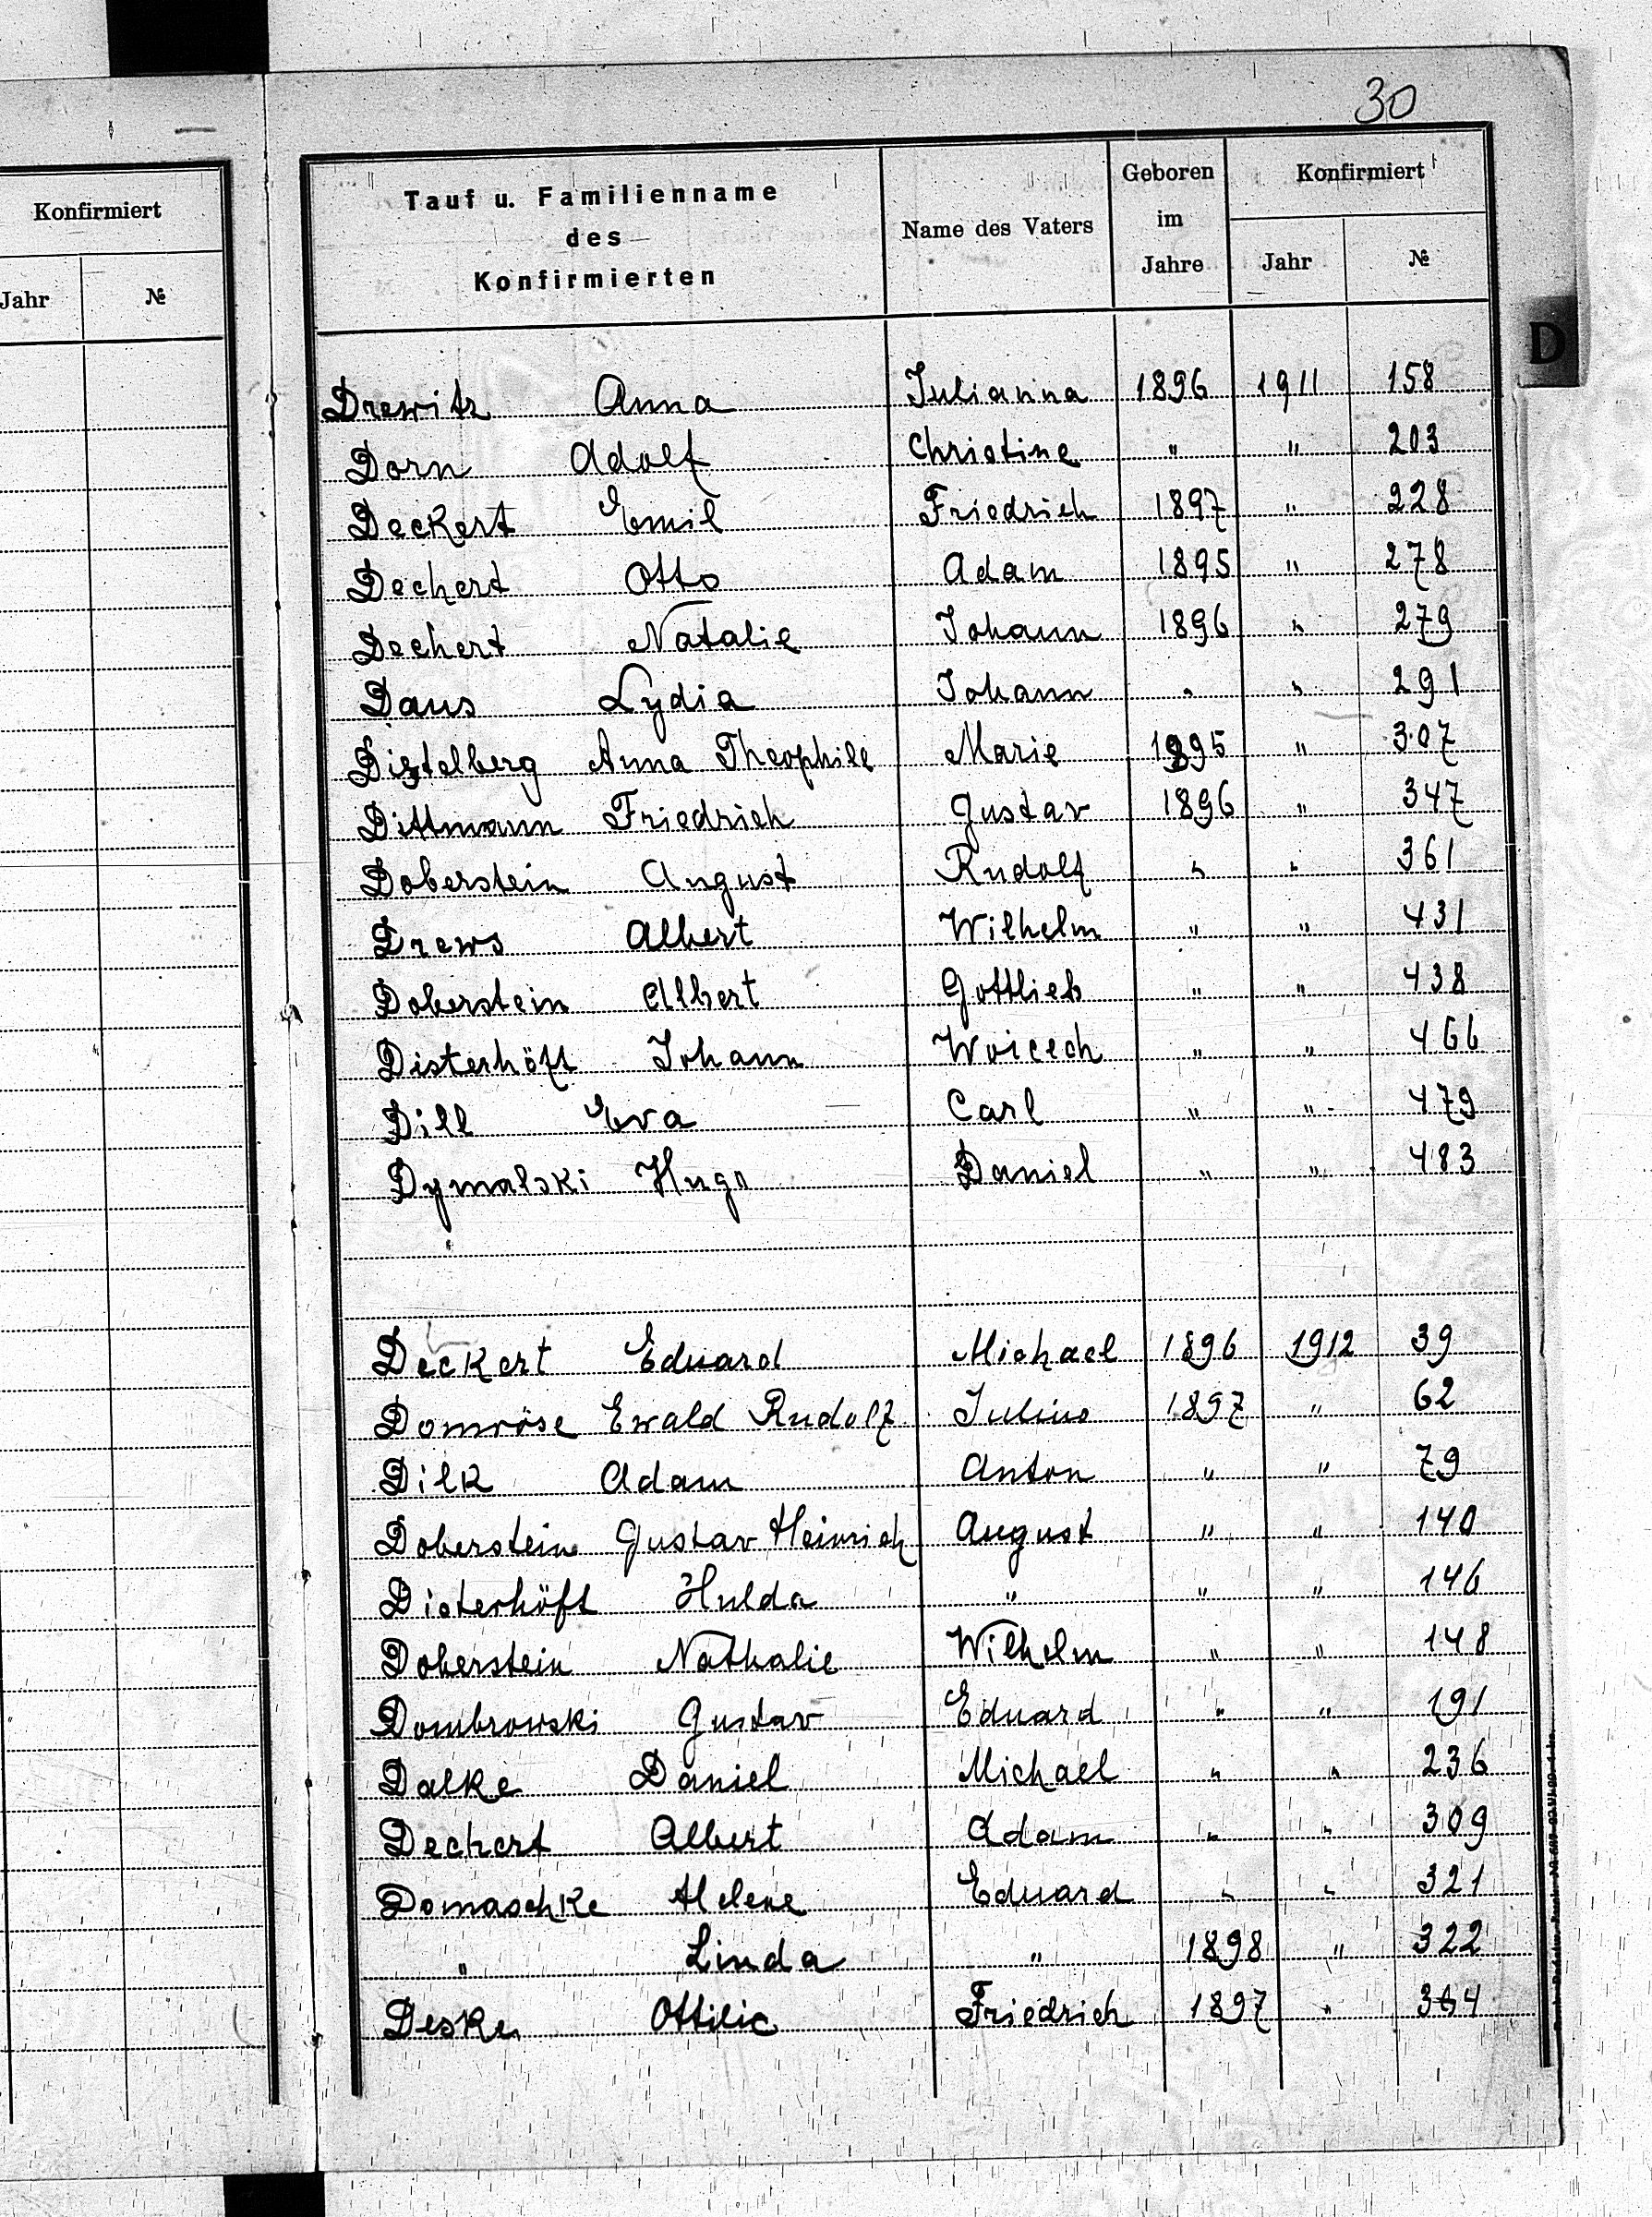 30
Konfirmiert
Jahr №
Tauf u. Familienname
des
Konfirmierten
Name des Vaters
Geboren
im
Jahre
Konfirmiert
Jahr №
D
Drewitz Anna Julianna 1896 1911 158
Dorn Adolf Christine " " 203
Deckert Emil Friedrich 1897 " 228
Dechert Otto Adam 1895 " 278
Dechert Natalie Johann 1896 " 279
Daus Lydia Johann " " 291
Distelberg Anna Theophile Marie 1895 " 307
Dittmann Friedrich Gustav 1896 " 347
Doberstein August Rudolf " " 361
Drews Albert Wilhelm " " 431
Doberstein Albert Gottlieb " " 438
Disterhöft Johann Woicech " " 466
Dill Eva Carl " " 479
Dymalski Hugo Daniel " " 483
Deckert Eduard Michael 1896 1912 39
Domröse Ewald Rudolf Julius 1897 " 62
Dilk Adam Anton " " 79
Doberstein Gustav Heinrich August " " 140
Disterhöft Hulda " " " 146
Doberstein Nathalie Wilhelm " " 148
Dombrowski Gustav Eduard " " 191
Dalke Daniel Michael " " 236
Dechert Albert Adam " " 309
Domaschke Helene Eduard " " 321
" Linda " 1898 " 322
Deske Ottilie Friedrich 1897 "